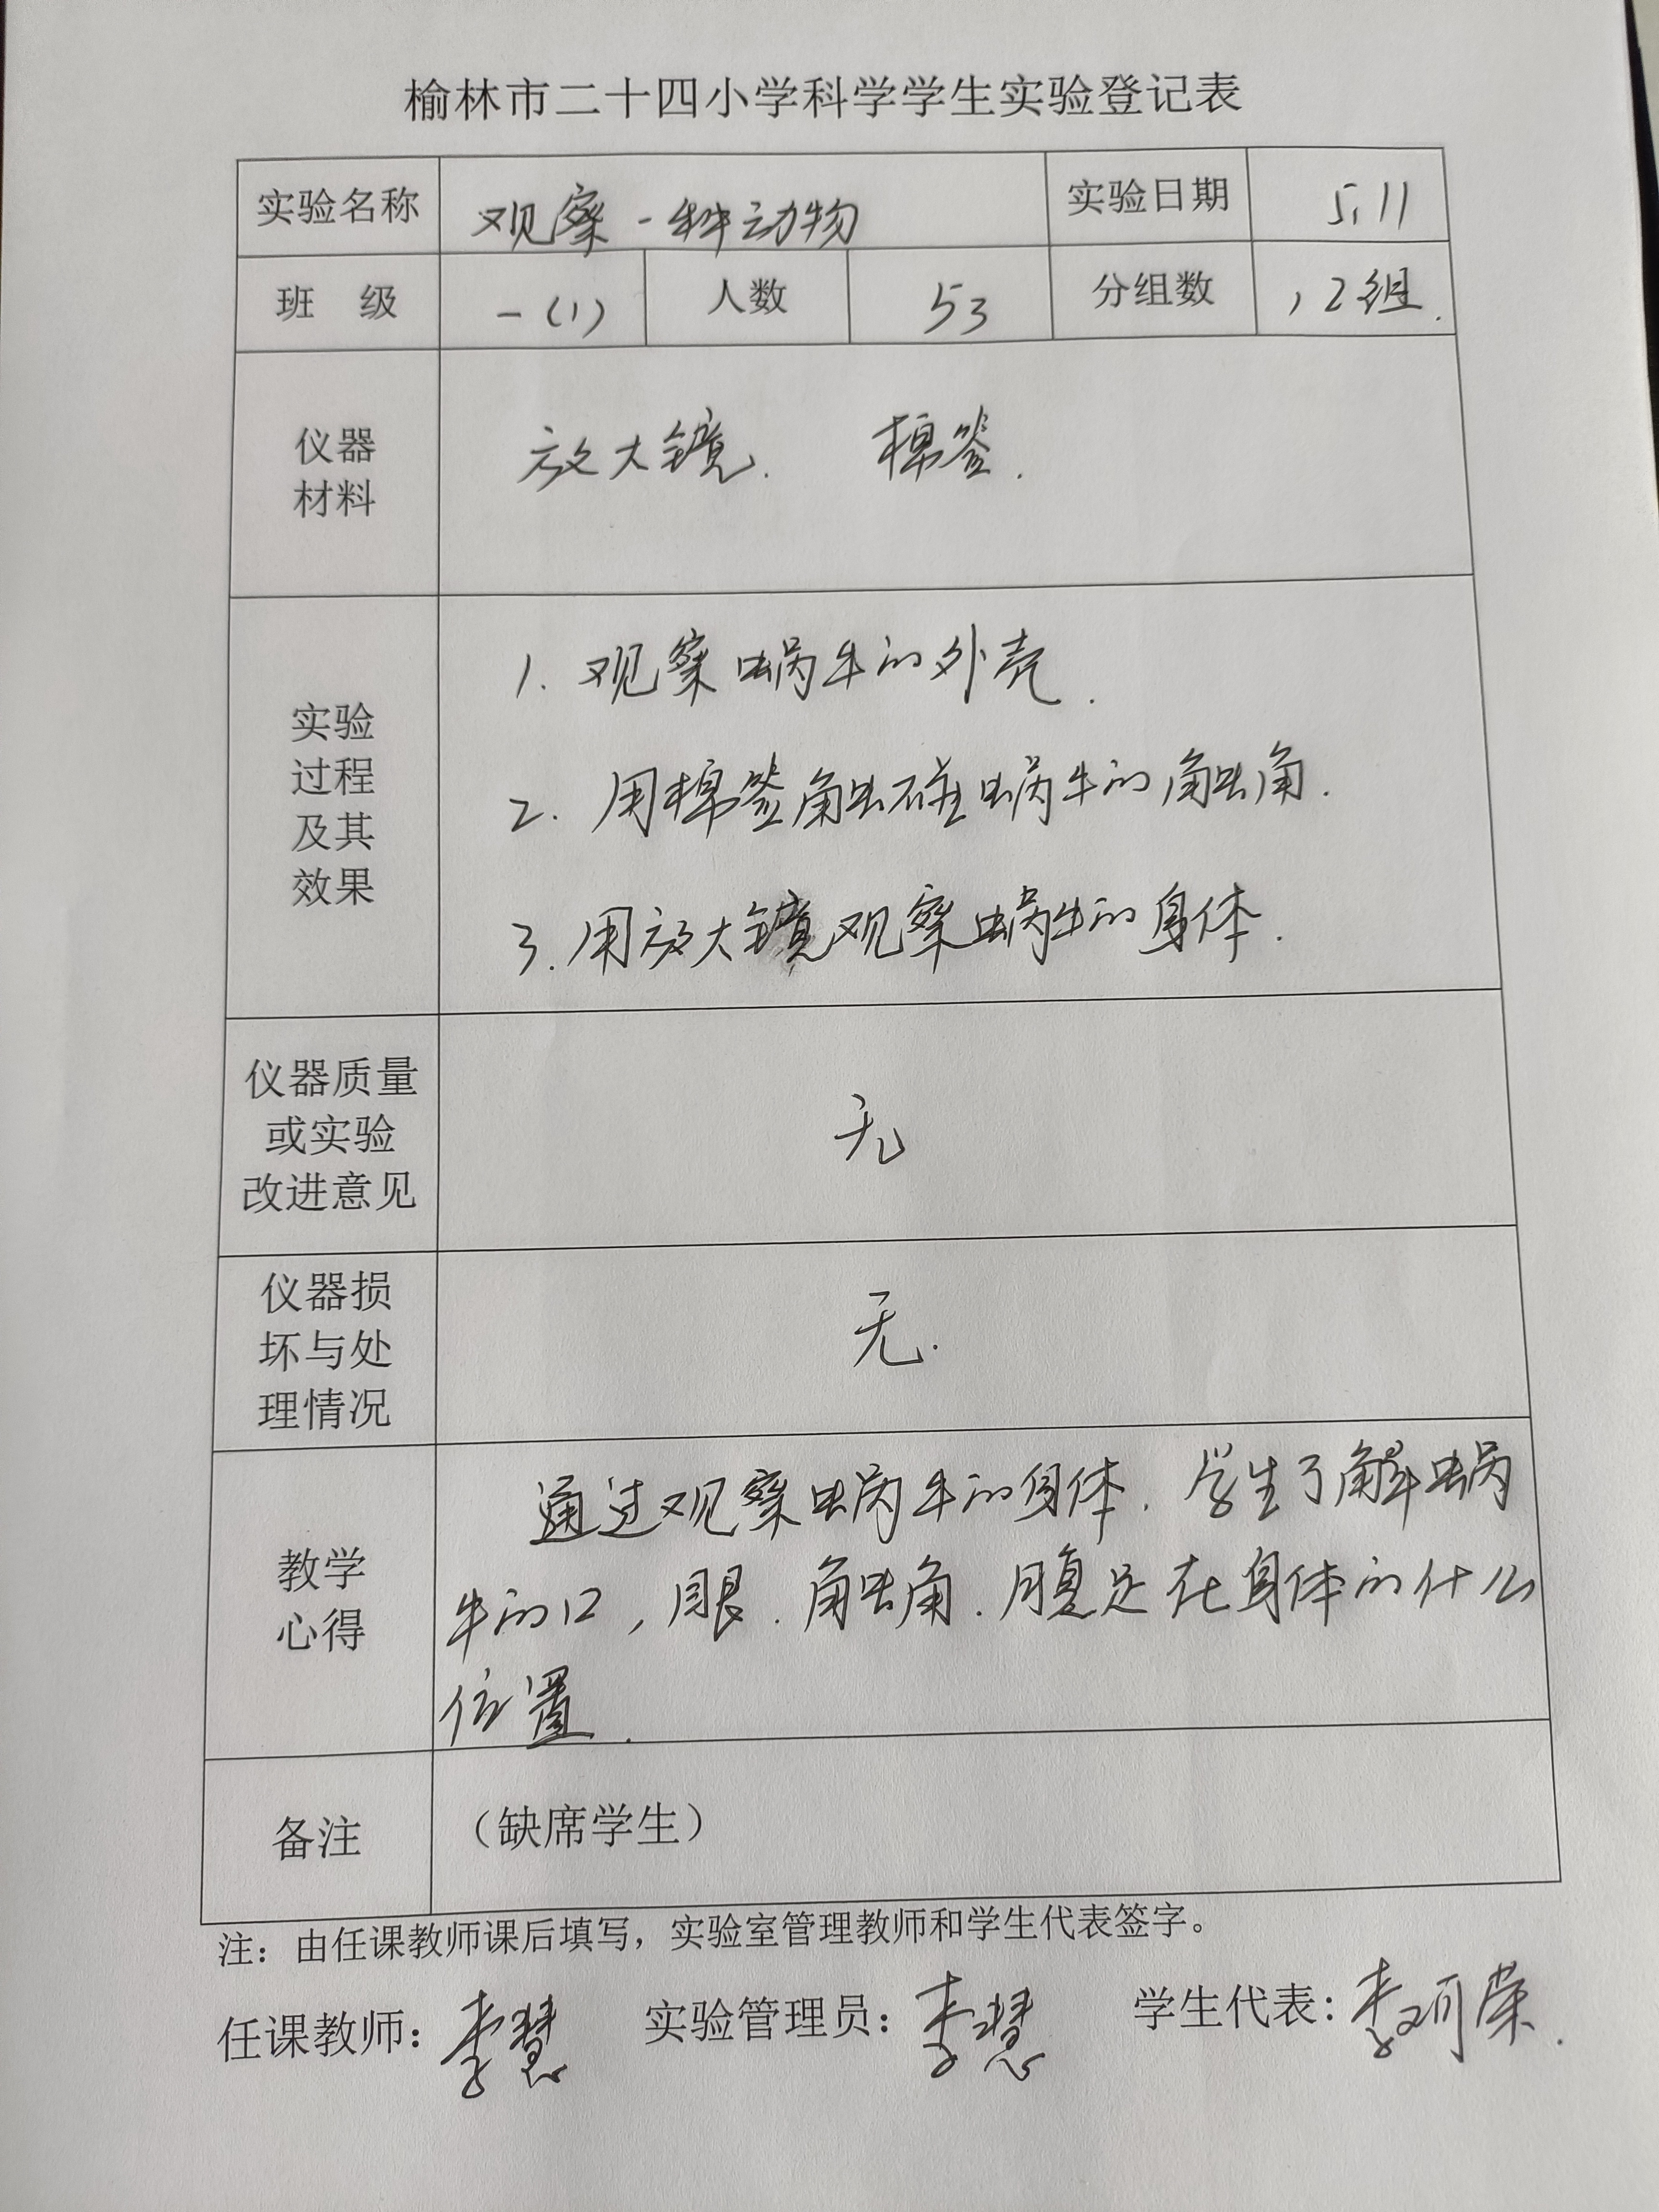 榆林市二十四小学科学学生实验登记表
实验名称 观察一种动物 实验日期 5.11
班 级 一(1) 人数 53 分组数 12组.
仪器
材料
放大镜. 棉签.
实验
过程
及其
效果
1. 观察蜗牛的外壳.
2. 用棉签触碰蜗牛的触角.
3. 用放大镜观察蜗牛的身体.
仪器质量
或实验
改进意见
无
仪器损
坏与处
理情况
无.
教学
心得
通过观察蜗牛的身体. 学生了解蜗
牛的口, 眼. 触角. 腹足在身体的什么
位置.
备注 (缺席学生)
注：由任课教师课后填写，实验室管理教师和学生代表签字。
任课教师：李慧 实验管理员：李慧 学生代表：李珂荣.